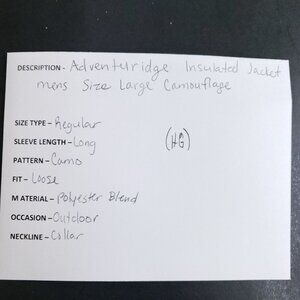 DESCRIPTION - Adventuridge Insulated Jacket
mens Size Large Camouflage
SIZE TYPE - Regular
SLEEVE LENGTH - Long
(HG)
PATTERN - Camo
FIT - Loose
MATERIAL - Polyester Blend
OCCASION - Outdoor
NECKLINE - Collar